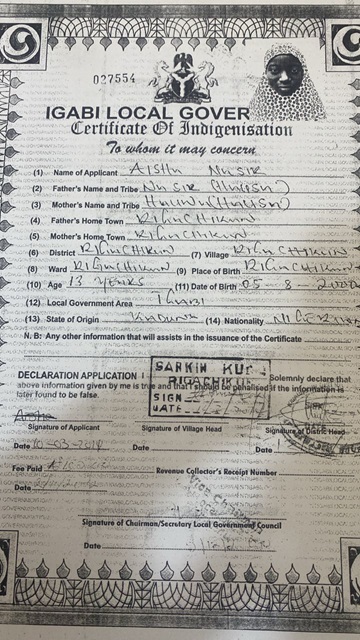 027554
IGABI LOCAL GOVER
Certificate Of Indigenisation
To whom it may concern
(1) Name of Applicant AISHA NASIR
(2) Father's Name and Tribe NASIR (HAUSA)
(3) Mother's Name and Tribe (HAUSA)
(4) Father's Home Town RIGACHIKUN
(5) Mother's Home Town RIGACHIKUN
(6) District RIGACHIKUN (7) Village RIGACHIKUN
(8) Ward RIGACHIKUN (9) Place of Birth RIGACHIKUN
(10) Age 13 YEARS (11) Date of Birth 05-8-
(12) Local Government Area IGABI
(13) State of Origin KADUNA (14) Nationality NIGERIAN
N. B: Any other information that will assists in the issuance of the Certificate
DECLARATION APPLICATION I Solemnly declare that
above information given by me is true and that I should be penalised if the information is
later found to be false.
SARKIN
RIGACHIKUN
SIGN
DATE
Aisha
Signature of Applicant Signature of Village Head Signature of District Head
Date Date Date
Fee Paid Revenue Collector's Receipt Number
Date
Signature of Chairman/Secretary Local Government Council
Date